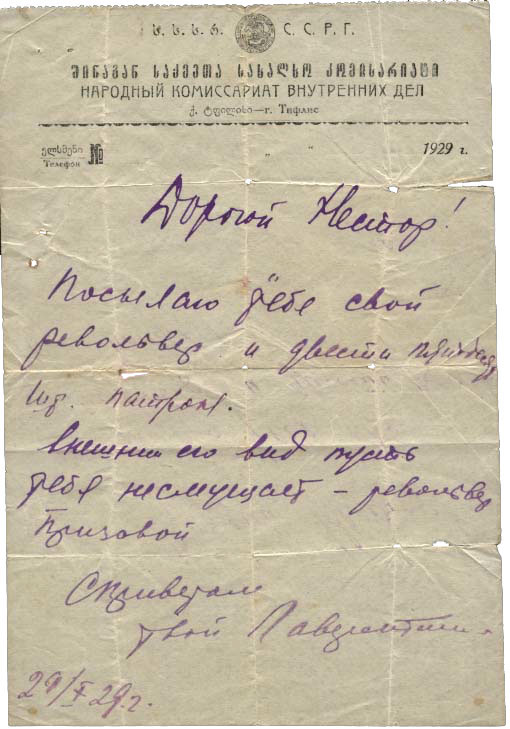 ს. ს. ს. რ. С. С. Р. Г.
შინაგან საქმეთა სახალხო კომისარიატი
НАРОДНЫЙ КОМИССАРИАТ ВНУТРЕННИХ ДЕЛ
ქ. ტფილისი—г. Тифлис
ელსმენი
Телефон №
„ „ 1929 г.
Дорогой Нестор!
Посылаю тебе свой
револьвер и двести пятьдесят
шт. патрон.
внешний его вид пусть
тебя несмущает – револьвер
призовой
Сприветом
твой Лаврентий.
29/X 29 г.